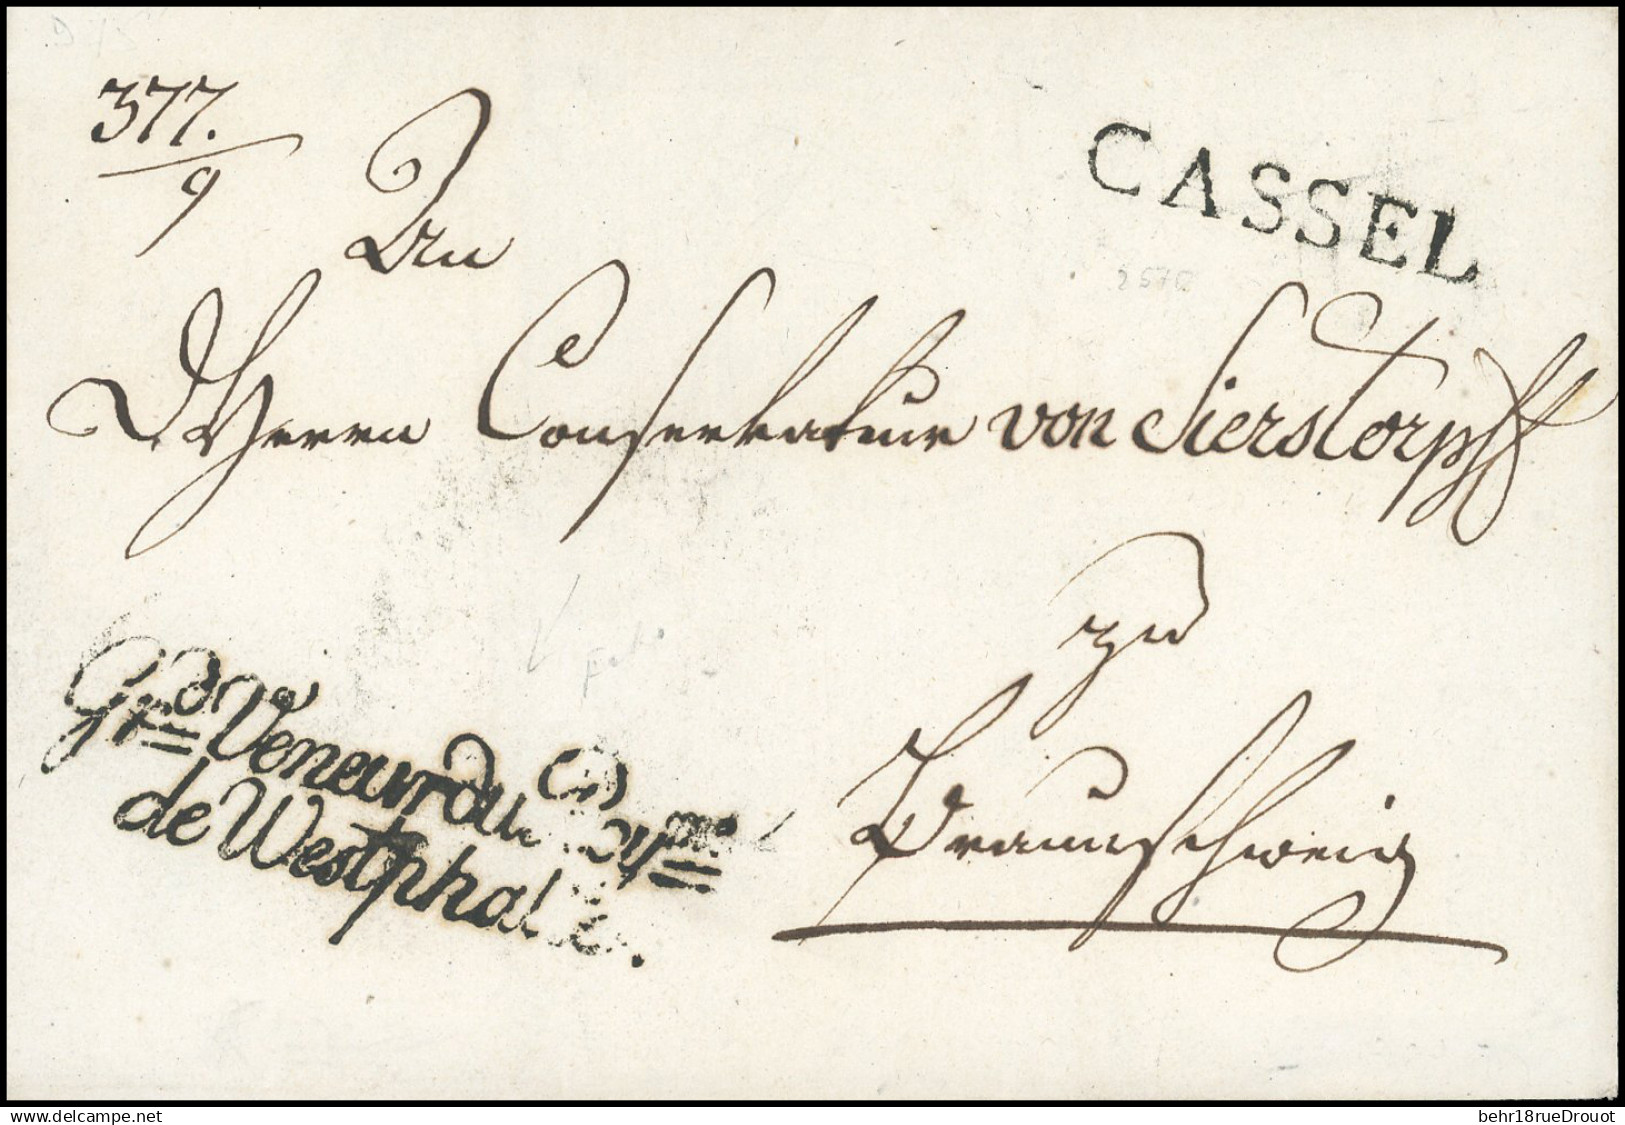 377.
9
CASSEL
An
Herrn Conservateur von Sierstorpff
zu
Braunschweig
Grd Veneur du Roy me
de Westphalie.
delcampe.net
behr18rueDrouot